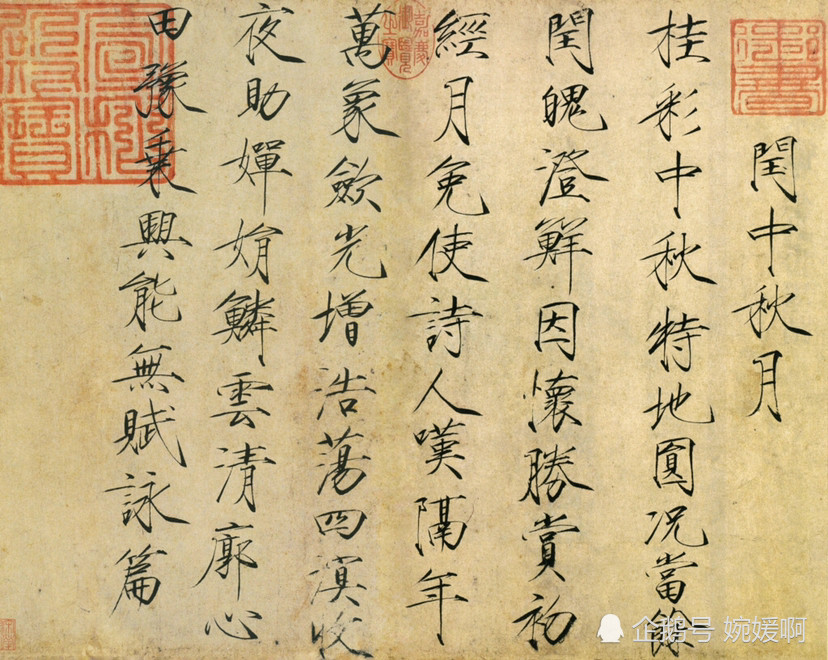 閏中秋月
桂彩中秋特地圓况當餘
閏魄澄鮮因懷勝賞初
經月免使詩人嘆隔年
萬象歛光增浩蕩四溟收
夜助嬋娟鱗雲清廓心
田豫乗興能無賦詠篇
御書
企鹅号 婉媛啊